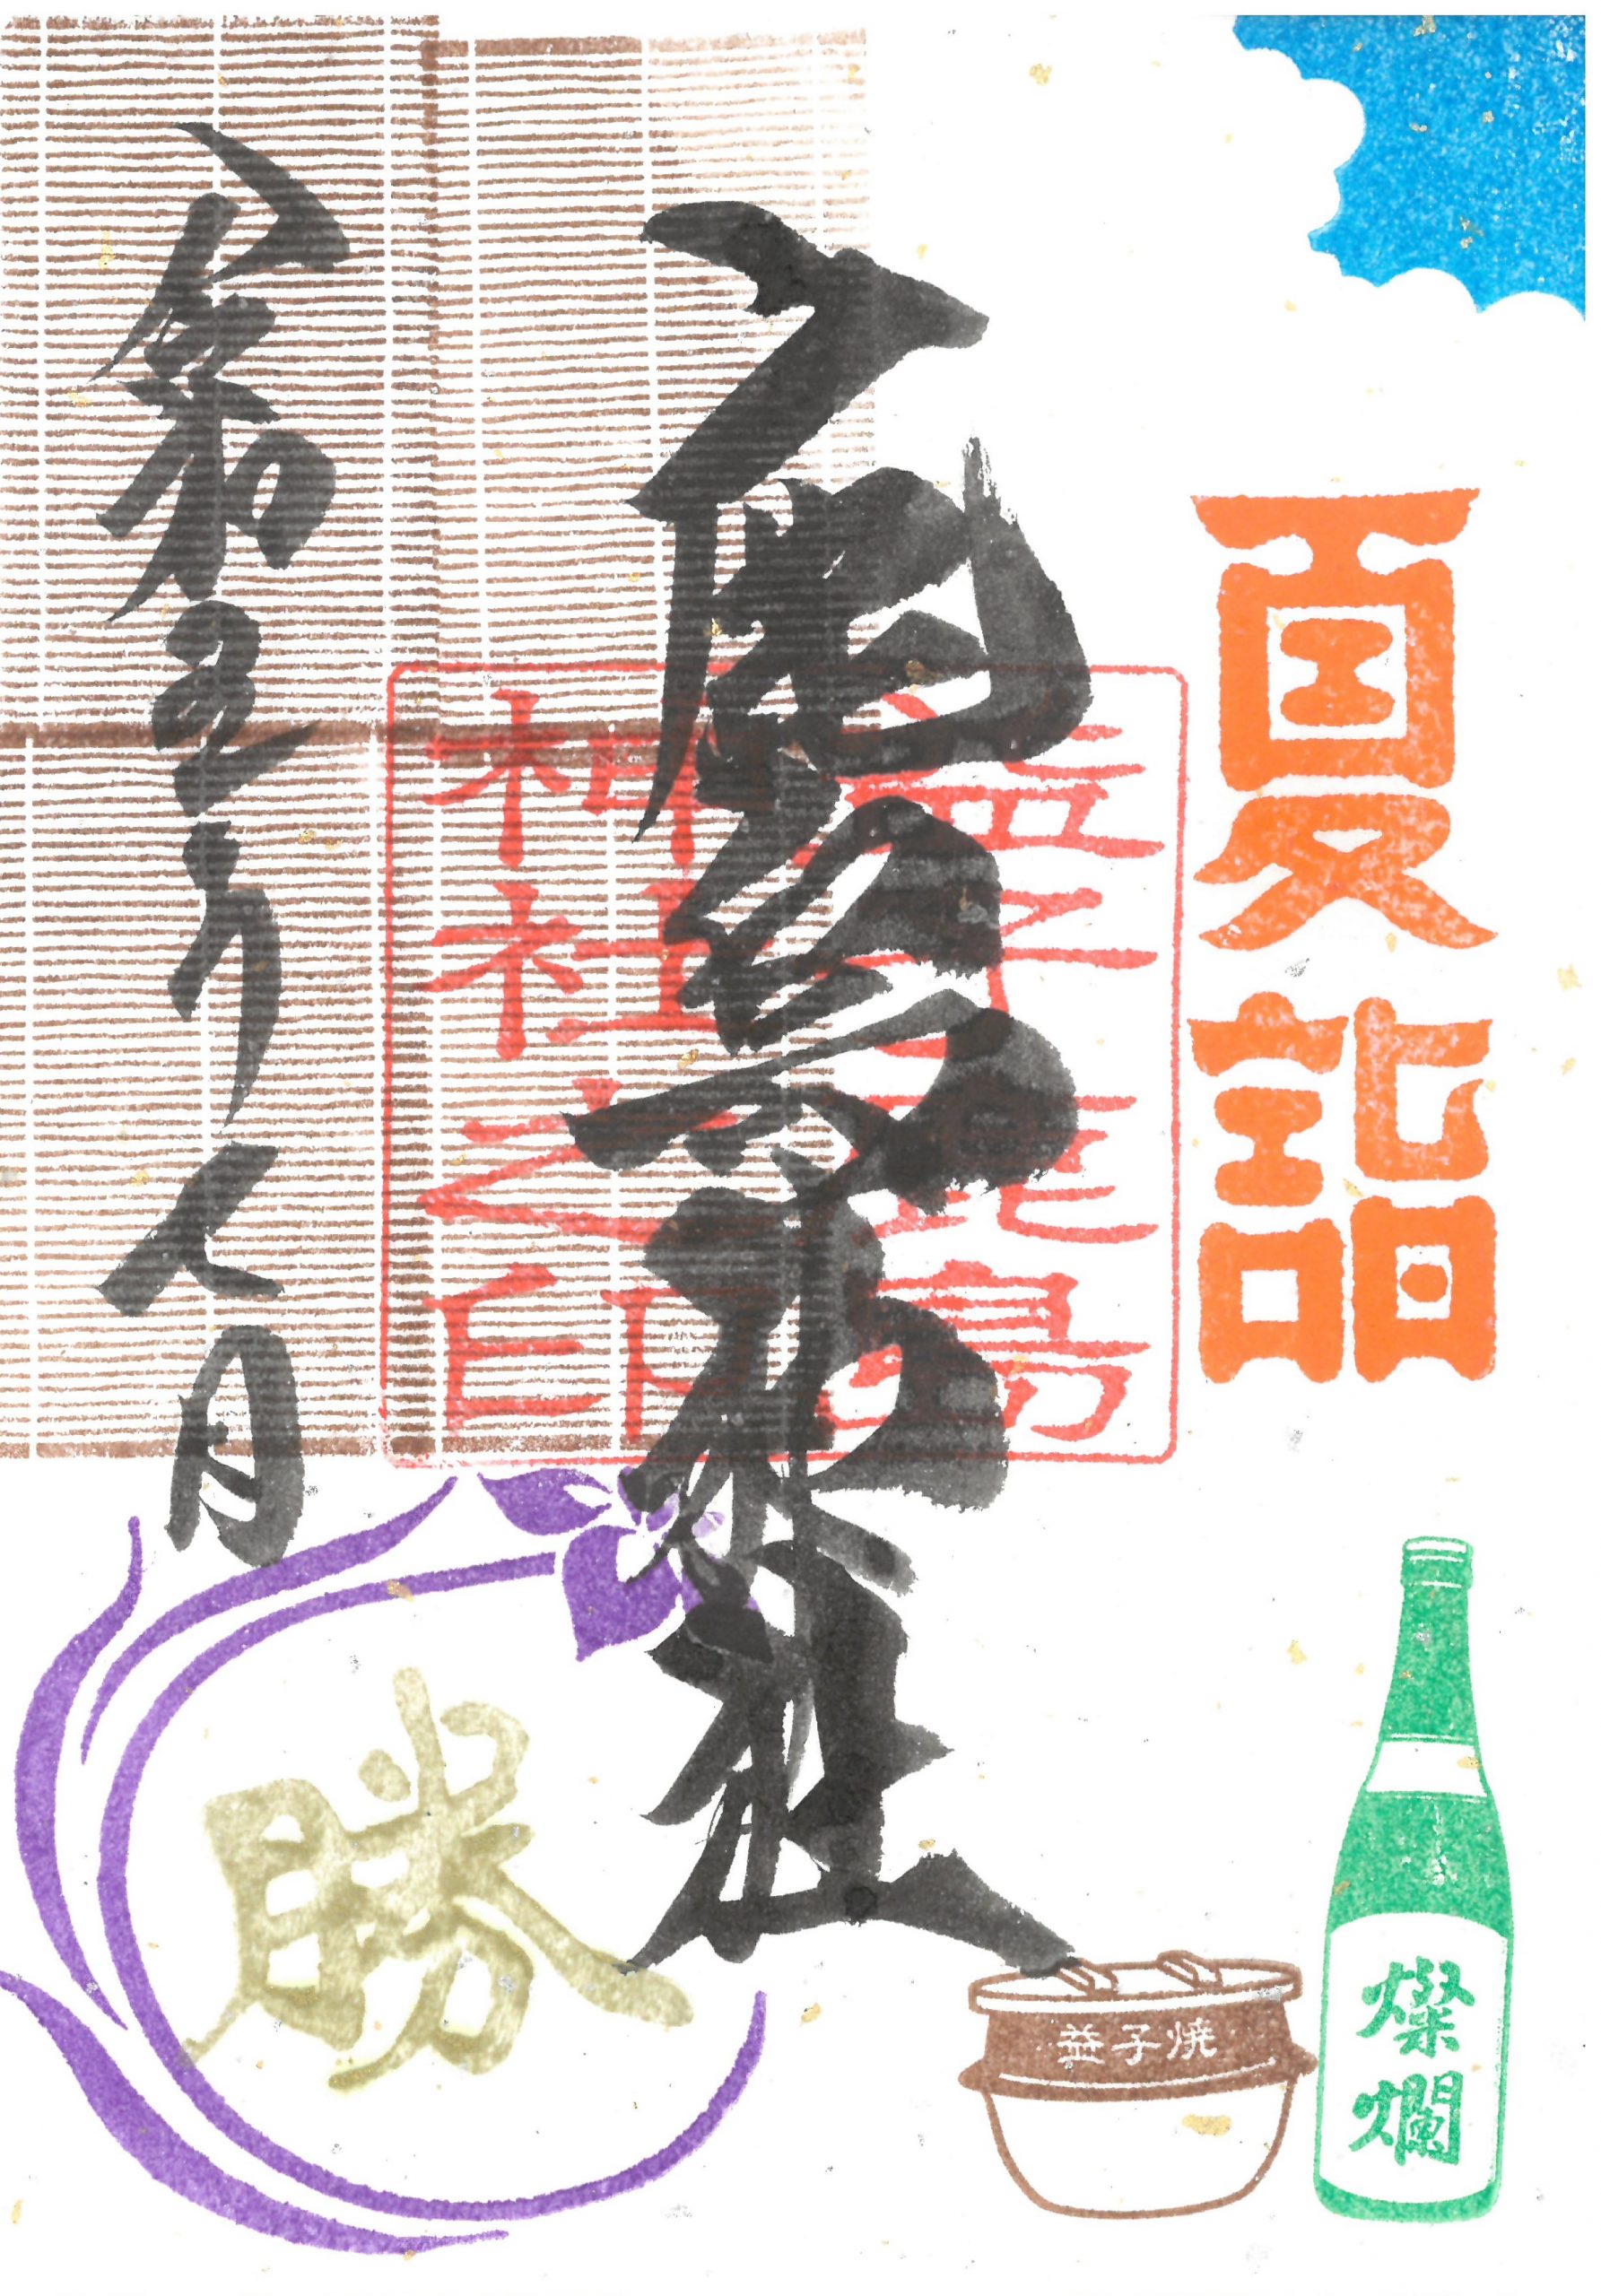 夏詣
鹿島神社
益子鹿島
神社之印
令和五年八月
勝
益子焼
燦爛